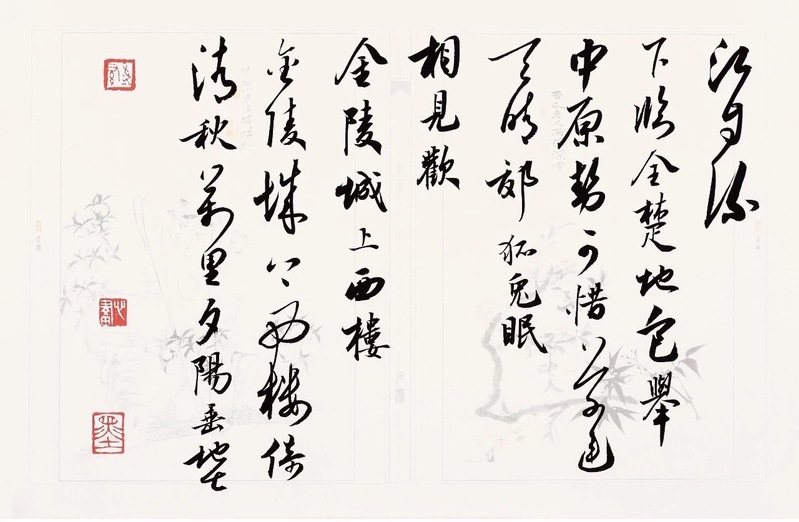 江流
下臨全楚地包舉
中原勢可惜草連
天晴郊狐兔眠
相見歡
金陵城上西樓
金陵城上西樓倚
清秋萬里夕陽垂地大